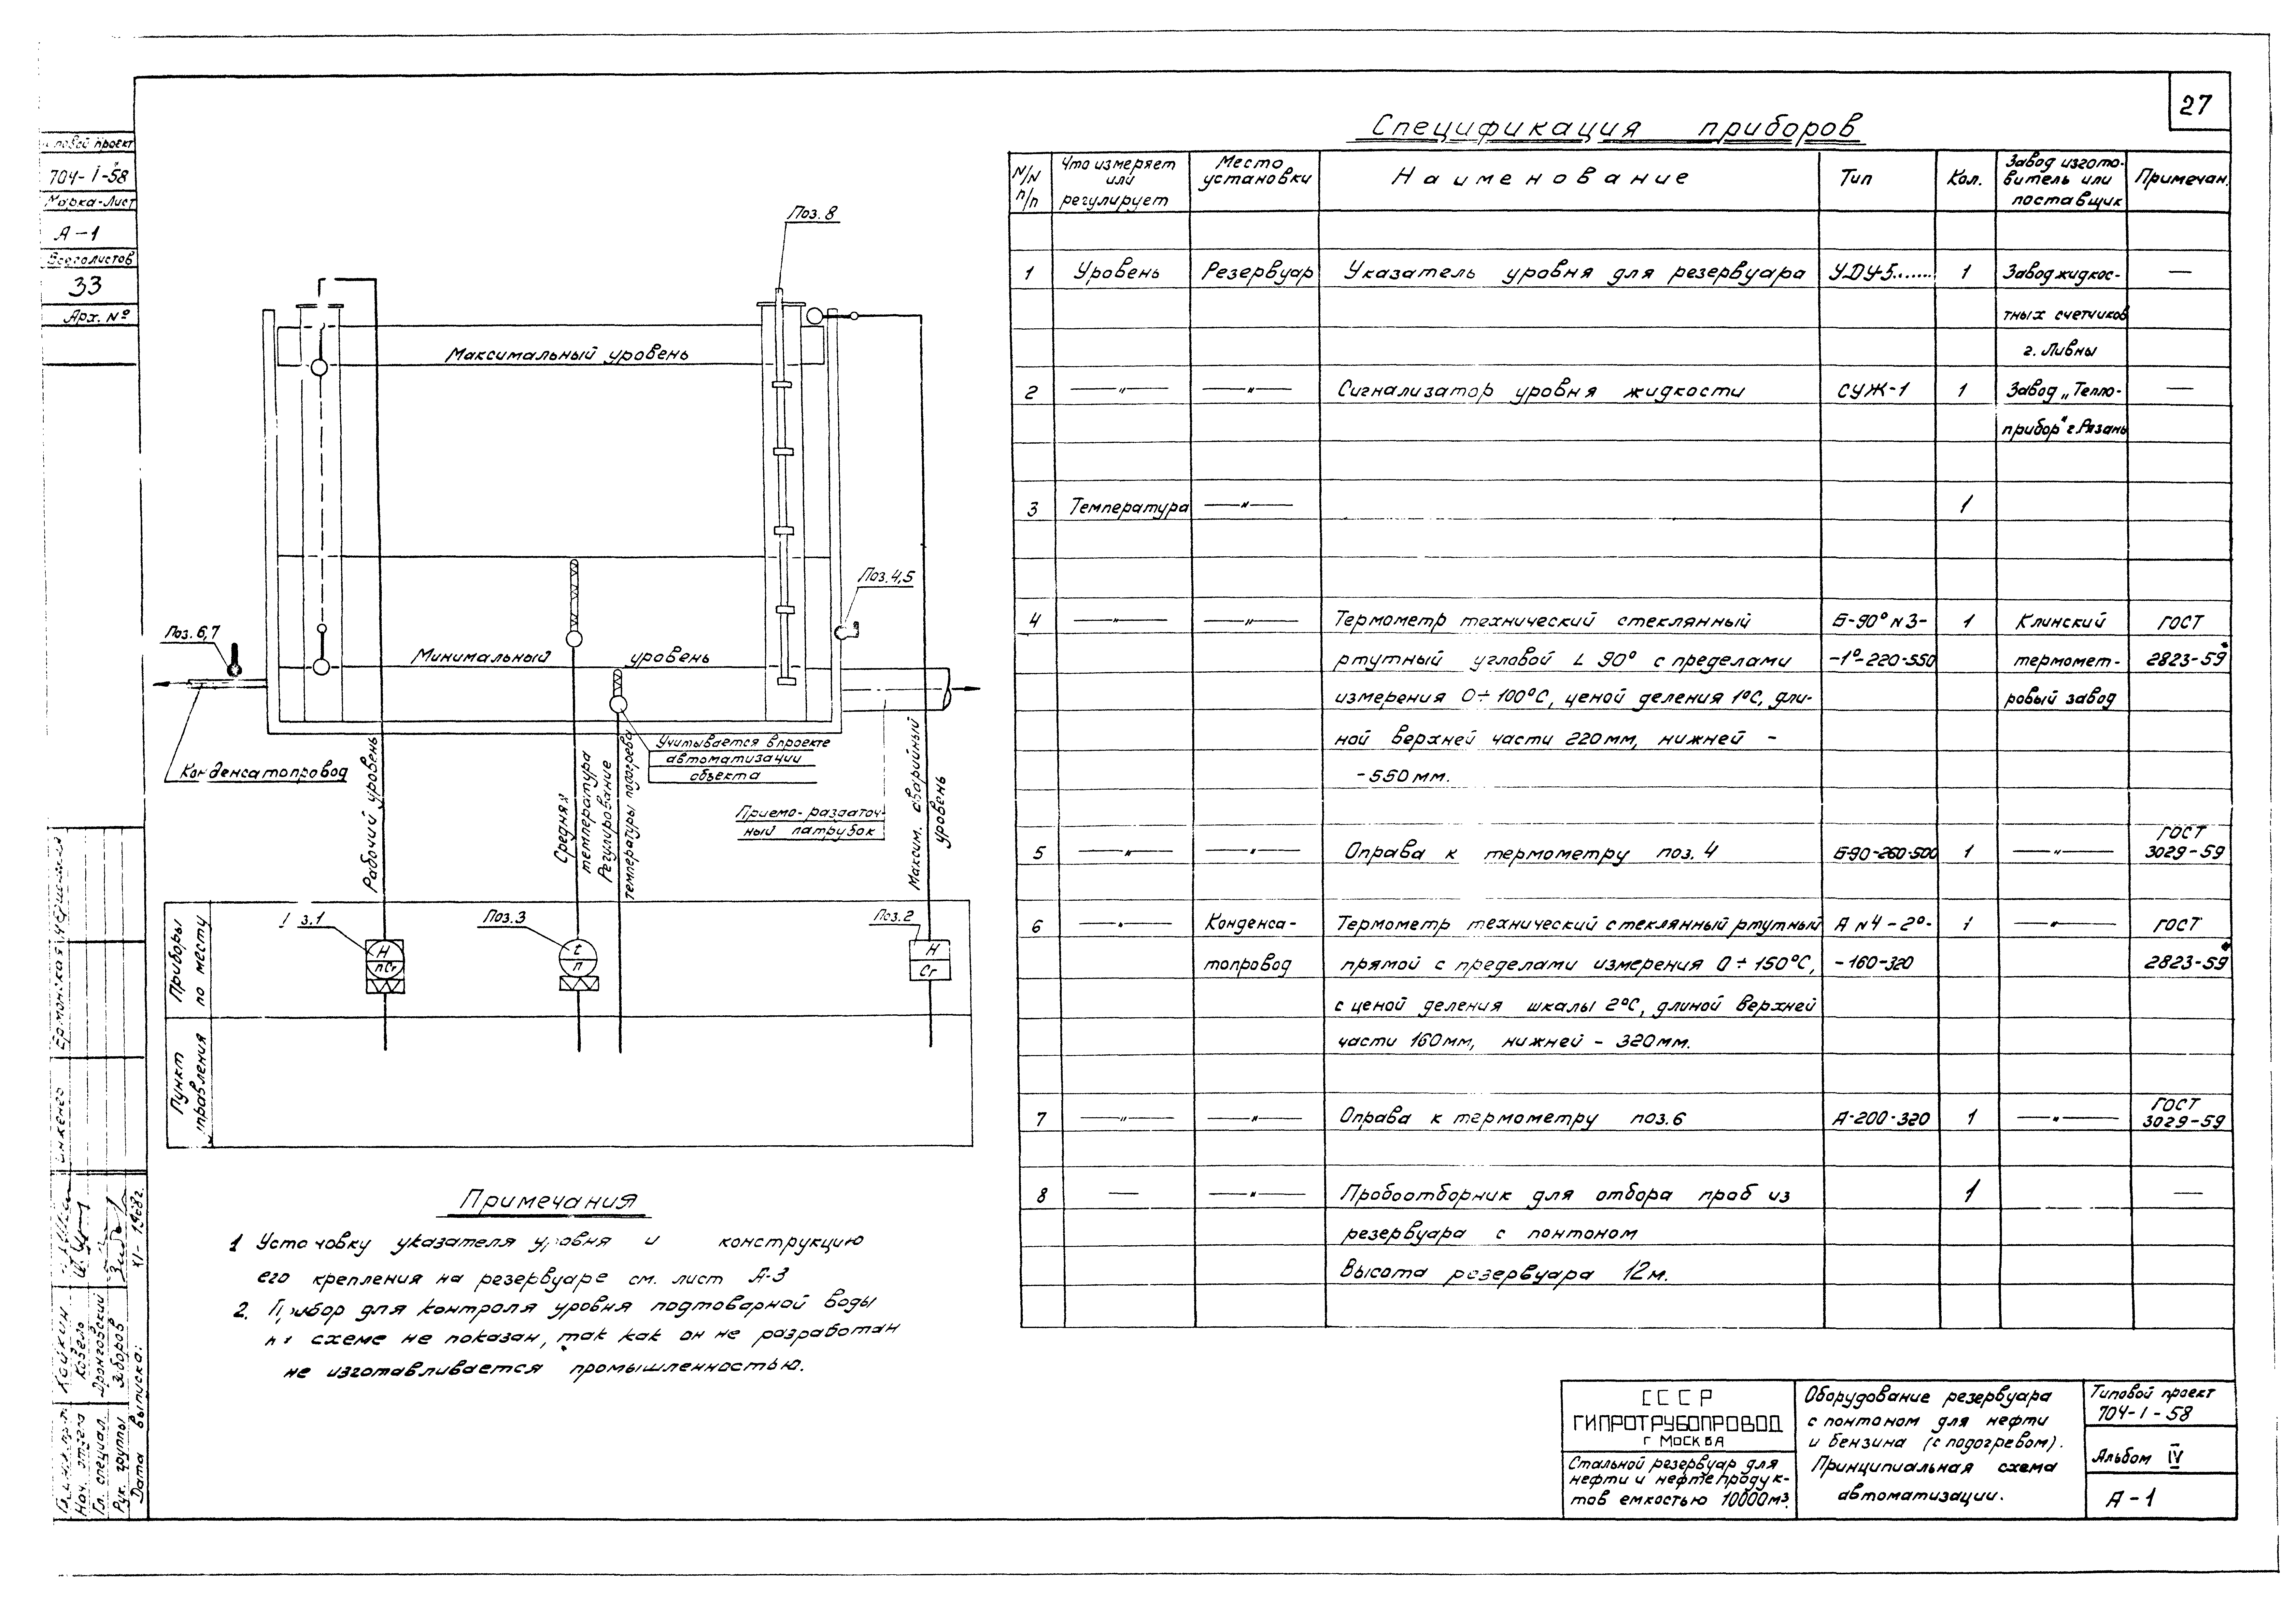 27
Спецификация приборов
N/N п/п
Что измеряет или регулирует
Место установки
Наименование
Тип
Кол.
Завод изгото-
витель или
поставщик
Примечан.
1 Уровень Резервуар Указатель уровня для резервуара УДУ-5....... 1 Завод жидкос- —
тных счетчиков
г. Ливны
2 —"— —"— Сигнализатор уровня жидкости СУЖ-1 1 Завод „Тепло- —
прибор" г. Рязань
3 Температура —"— 1
4 —"— —"— Термометр технический стеклянный Б-90° N3- 1 Клинский ГОСТ
ртутный угловой L 90° с пределами -1°-220-550 термомет- 2823-59*
измерения 0÷100°С, ценой деления 1°С, дли- ровый завод
ной верхней части 220мм, нижней -
-550мм.
5 —"— —"— Оправа к термометру поз. 4 Б-90-260-500 1 —"— ГОСТ 3029-59
6 —"— Конденса- Термометр технический стеклянный ртутный А N4-2°- 1 —"— ГОСТ
топровод прямой с пределами измерения 0÷150°С, -160-320 2823-59*
с ценой деления шкалы 2°С, длиной верхней
части 160мм, нижней - 320мм.
7 —"— —"— Оправа к термометру поз.6 А-200-320 1 —"— ГОСТ 3029-59
8 — —"— Пробоотборник для отбора проб из 1 —
резервуара с понтоном
Высота резервуара 12м.
Поз. 8
Максимальный уровень
Поз.4,5
Поз.6,7
Минимальный уровень
Конденсатопровод
Учитывается в проекте
автоматизации
объекта
Приемо-раздаточ-
ный патрубок
Рабочий уровень
Средняя
температура
Регулирование
температуры подогрева
Максим. аварийный
уровень
Приборы
по месту
Пункт
управления
з.1
Н
пСг
Поз.3
t
п
Поз.2
Н
Сг
Примечания
1 Установку указателя уровня и конструкцию
его крепления на резервуаре см. лист А-3
2. Прибор для контроля уровня подтоварной воды
схеме не показан, так как он не разработан
не изготавливается промышленностью.
СССР
ГИПРОТРУБОПРОВОД
г Москва
Стальной резервуар для
нефти и нефтепродук-
тов емкостью 10000м³.
Оборудование резервуара
с понтоном для нефти
и бензина (с подогревом).
Принципиальная схема
автоматизации.
Типовой проект
704-1-58
Альбом IV
А-1
повой проект
704-1-58
Марка-Лист
А-1
Всего листов
33
Арх. №
Ермонская
Нач. отдела Козело
Гл. специал. Дронговский
Рук. группы Зиборов
Дата выписка: XI-1968г.